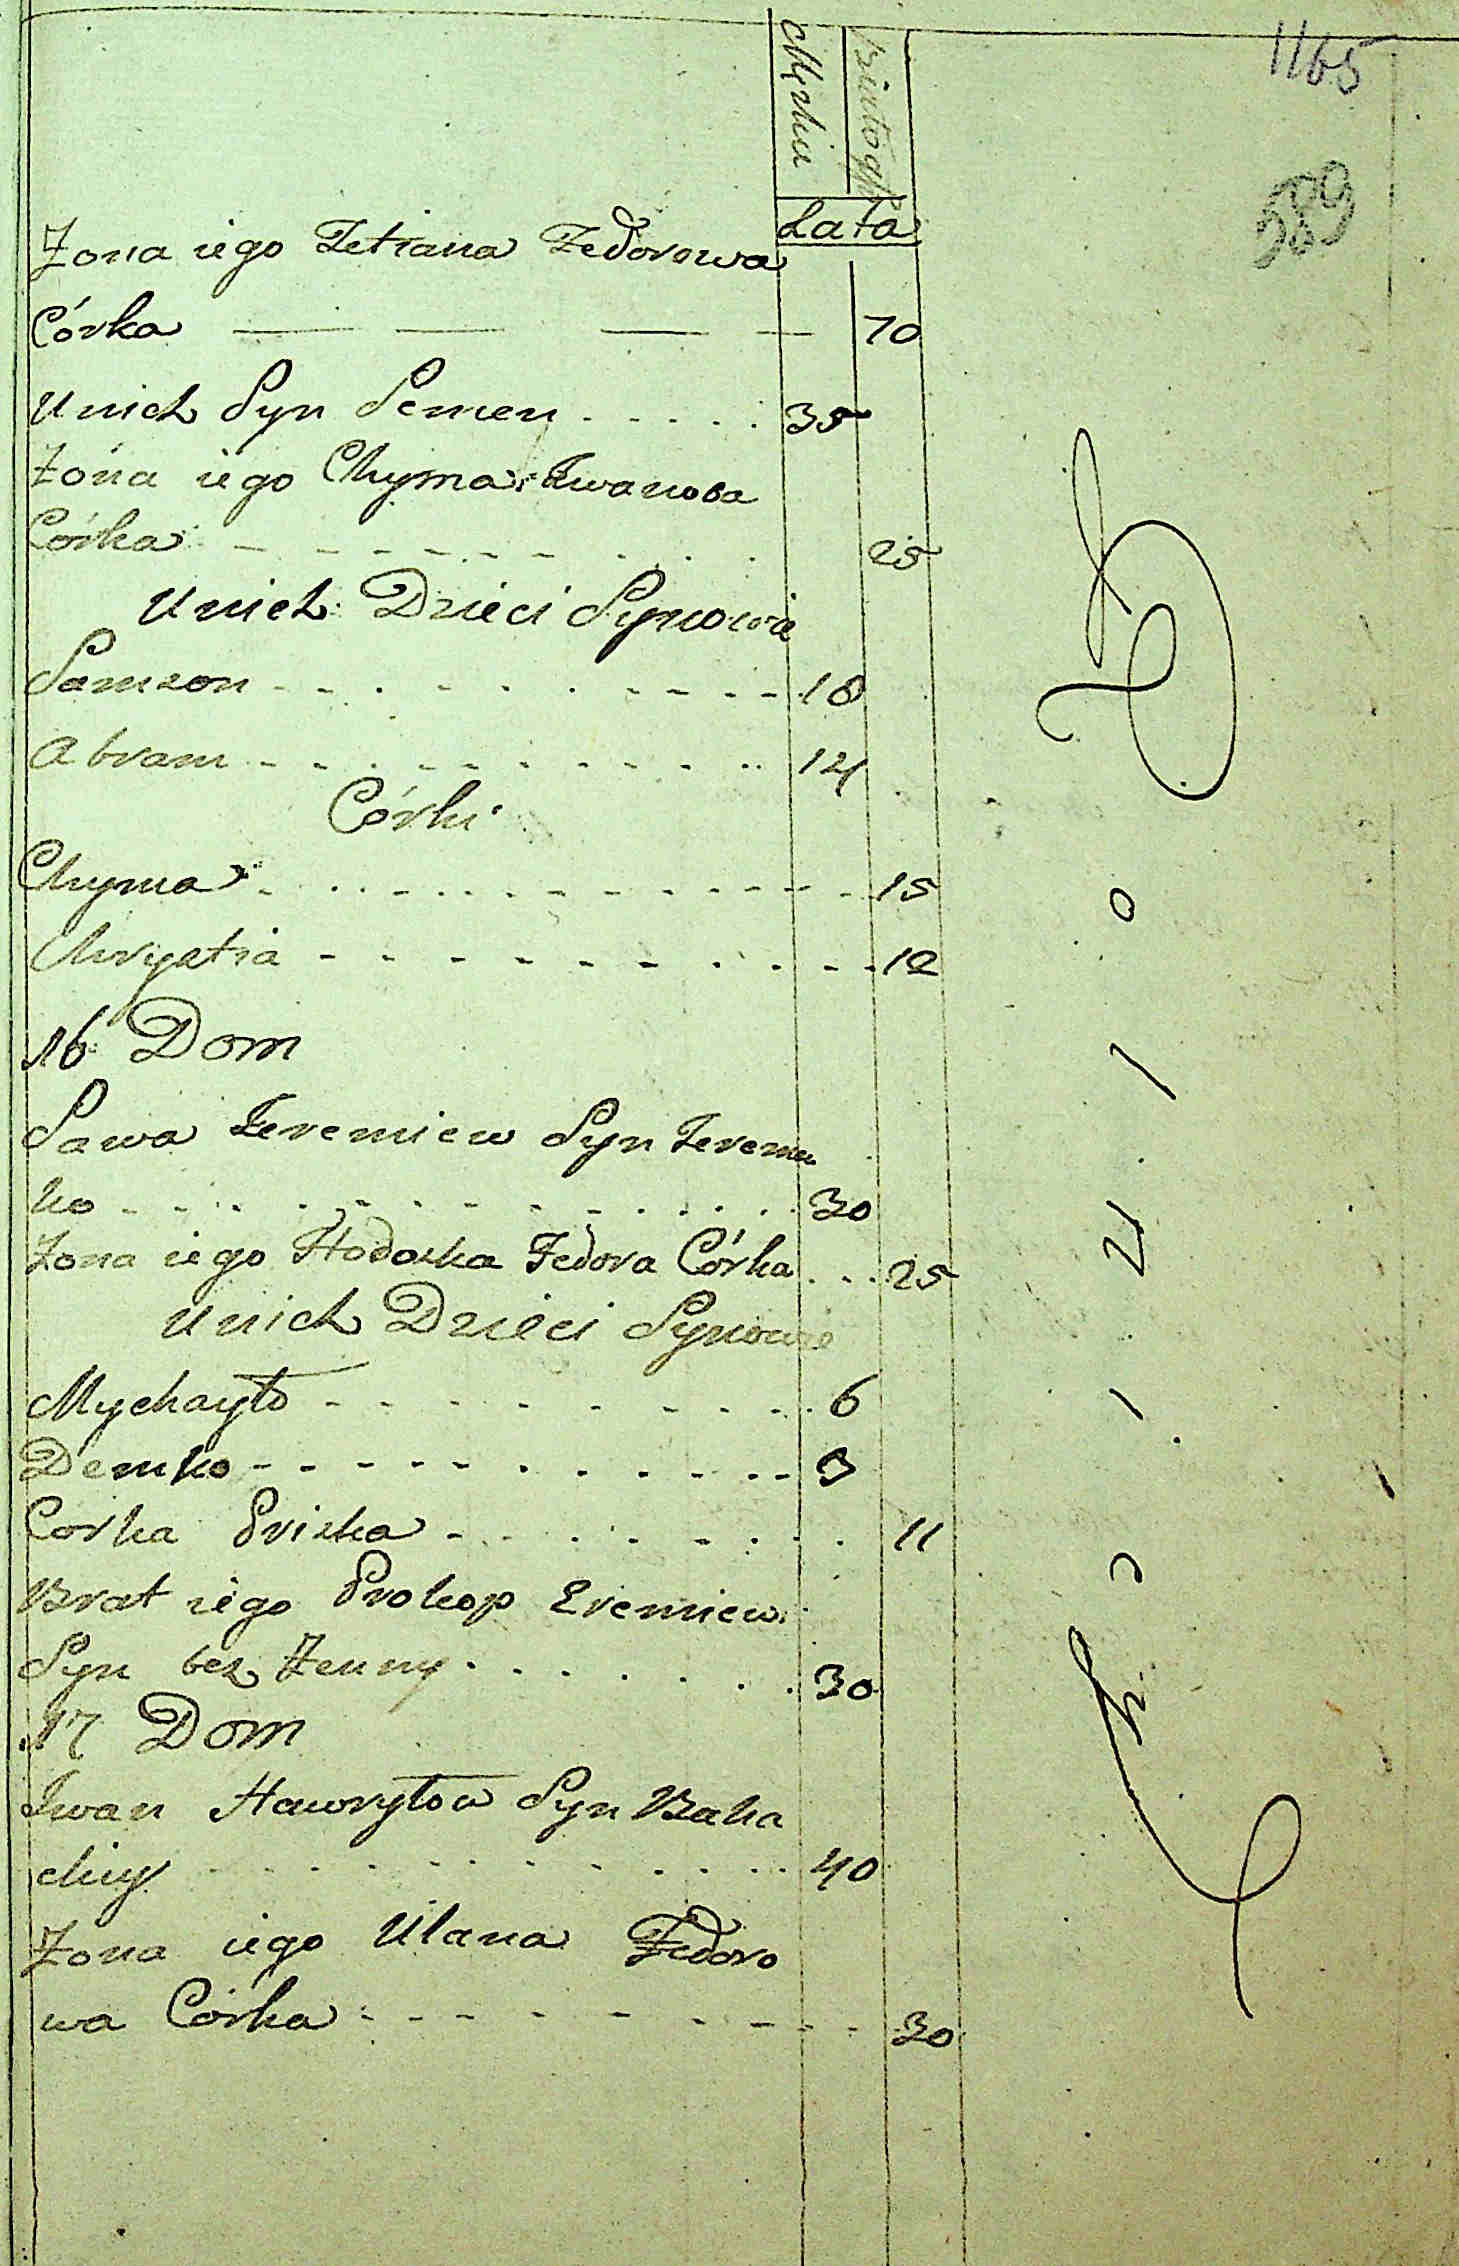 1165
589
Męska
Lata
Żona iego Tetiana Fedorowa
Córka 70
Unich Syn Semen 35
Żona iego Chyma Iwanowa
Córka 25
Unich Dzieci Synowie
Samson 18
Abram 14
Córki
Chyma 15
Chrystia 12
16 Dom
Sawa Jeremiew Syn Jeremen
ko 30
Żona iego Hodoska Fedora Córka 25
Unich Dzieci Synowie
Mychayło 6
Demko 3
Corka Priska 11
Brat iego Prokop Eremiew
Syn bez Żenny 30
17 Dom
Iwan Hawryłow Syn Baka
40
Żona iego Ulana Fedoro
wa Córka 30